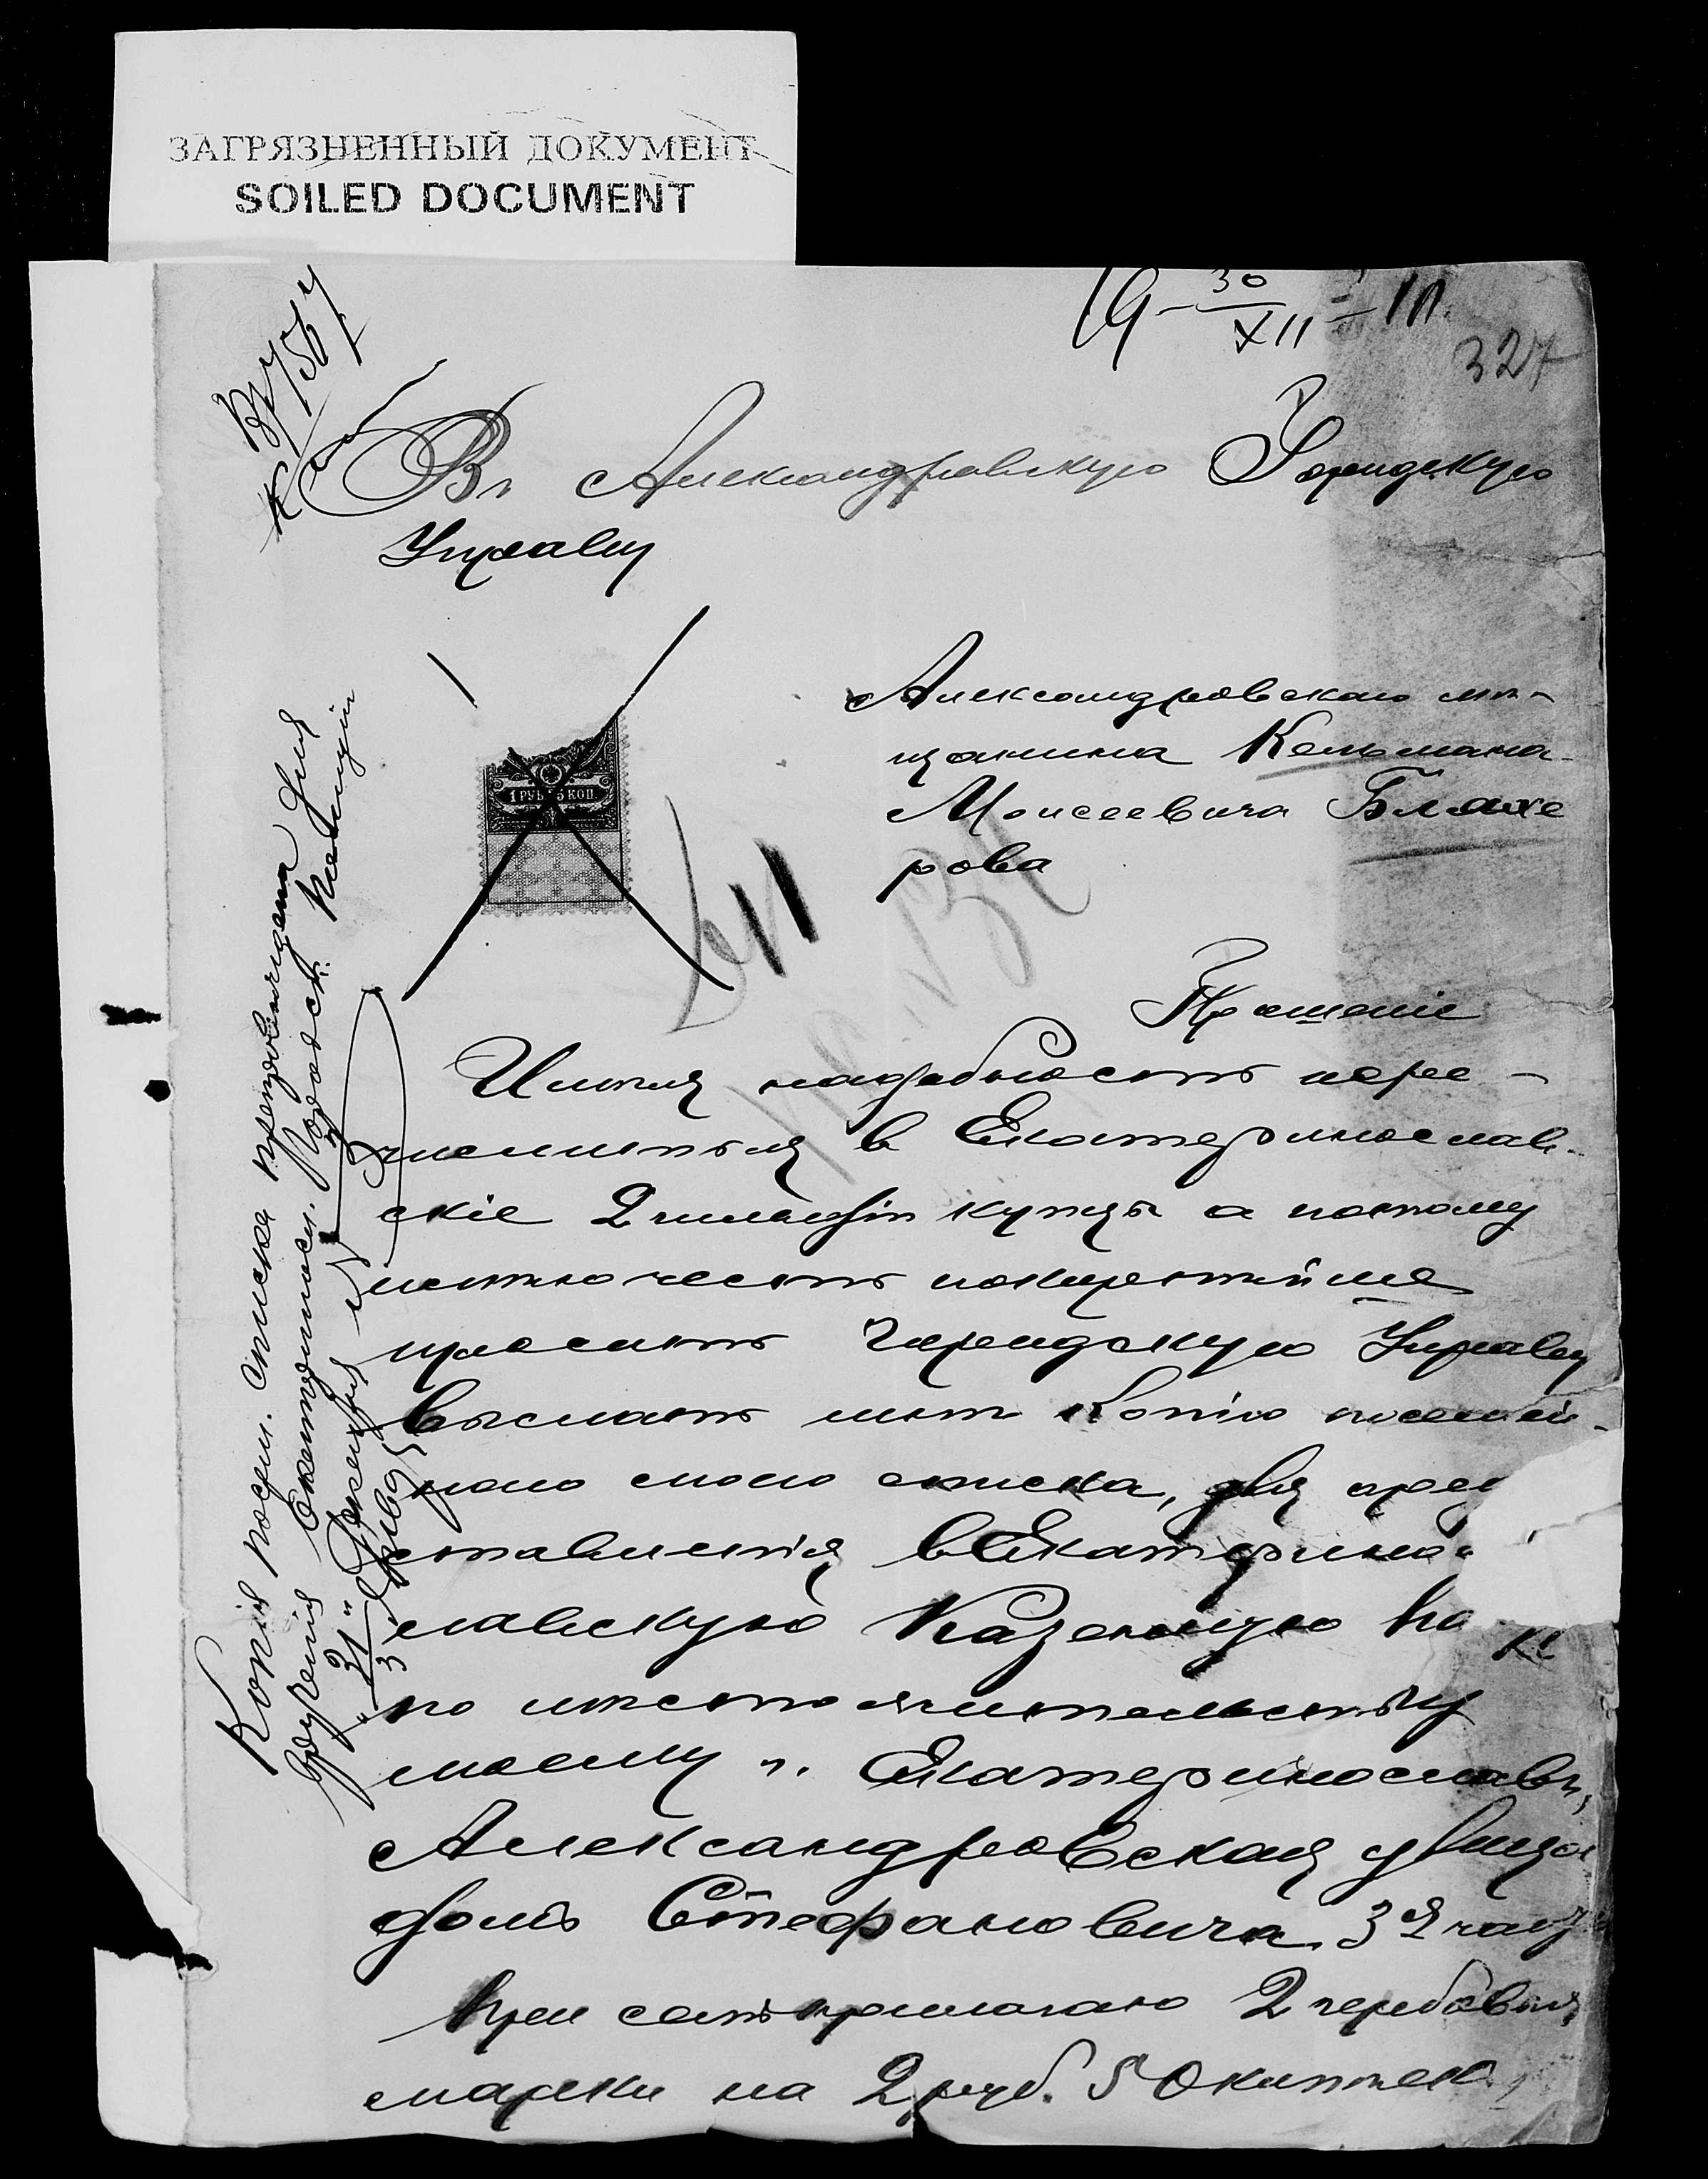 ЗАГРЯЗНЕННЫЙ ДОКУМЕНТ
SOILED DOCUMENT
19 30/XII
327
Въ Александровскую Городскую
Управу
Александровскаго мѣ-
щанина Кельмана
Моисеевича Блохе
рова
1 РУБ 5 КОП.
Прошеніе
Имѣя надобность пере-
числиться в Екатеринослав-
скіе 2 гильдіи купцы а потому
имѣю честь покорнѣйше
просить Городскую Управу
выслать мнѣ копію посемей-
наго моего списка, для пред
ставленія в Екатерино-
славскую Казенную Па
по мѣстожительству
моему г. Екатеринославъ,
Александровская улица
домъ Стефановича 3я часть
При семъ прилагаю 2 гербовыя
марки на 2 руб. 50 копѣек
Копія посем. списка препровождена для
врученія Екатериносл. Городск. Полиціи
"31" Декабря